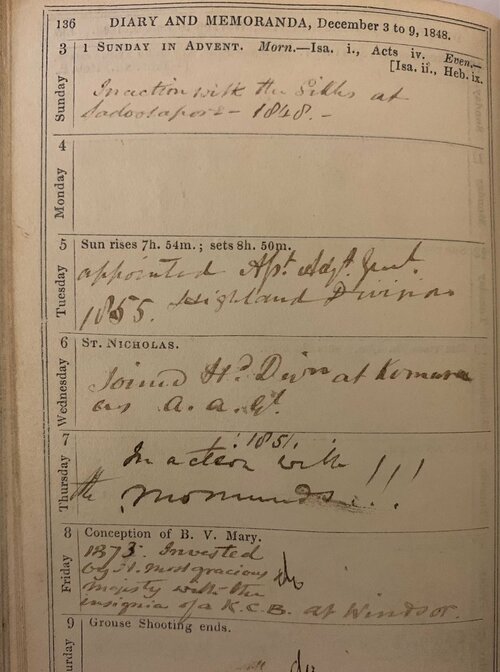 136 DIARY AND MEMORANDA, December 3 to 9, 1848.
3 1 SUNDAY IN ADVENT. Morn.—Isa. i., Acts iv. Even.—
[Isa. ii., Heb. ix.
Sunday
In action with the Sikhs at
Sadoolapore - 1848. -
4
Monday
5 Sun rises 7h. 54m.; sets 8h. 50m.
Tuesday
appointed Asst. Adjt. Genl.
1855. Highland Division
6 ST. NICHOLAS.
Wednesday
Joined Hd. Divn at Kamara
as A. A. Gl.
7
Thursday
1851.
In action with
the Momunds !!!
8 Conception of B. V. Mary.
Friday
1873. Invested
by H. most gracious
Majesty with the
insignia of a K.C.B. at Windsor.
9 Grouse Shooting ends.